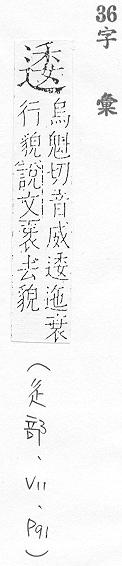 36字彙
逶
烏魁切音威逶迤衺
行貌說文衺去貌
(辵部、VII、P91)